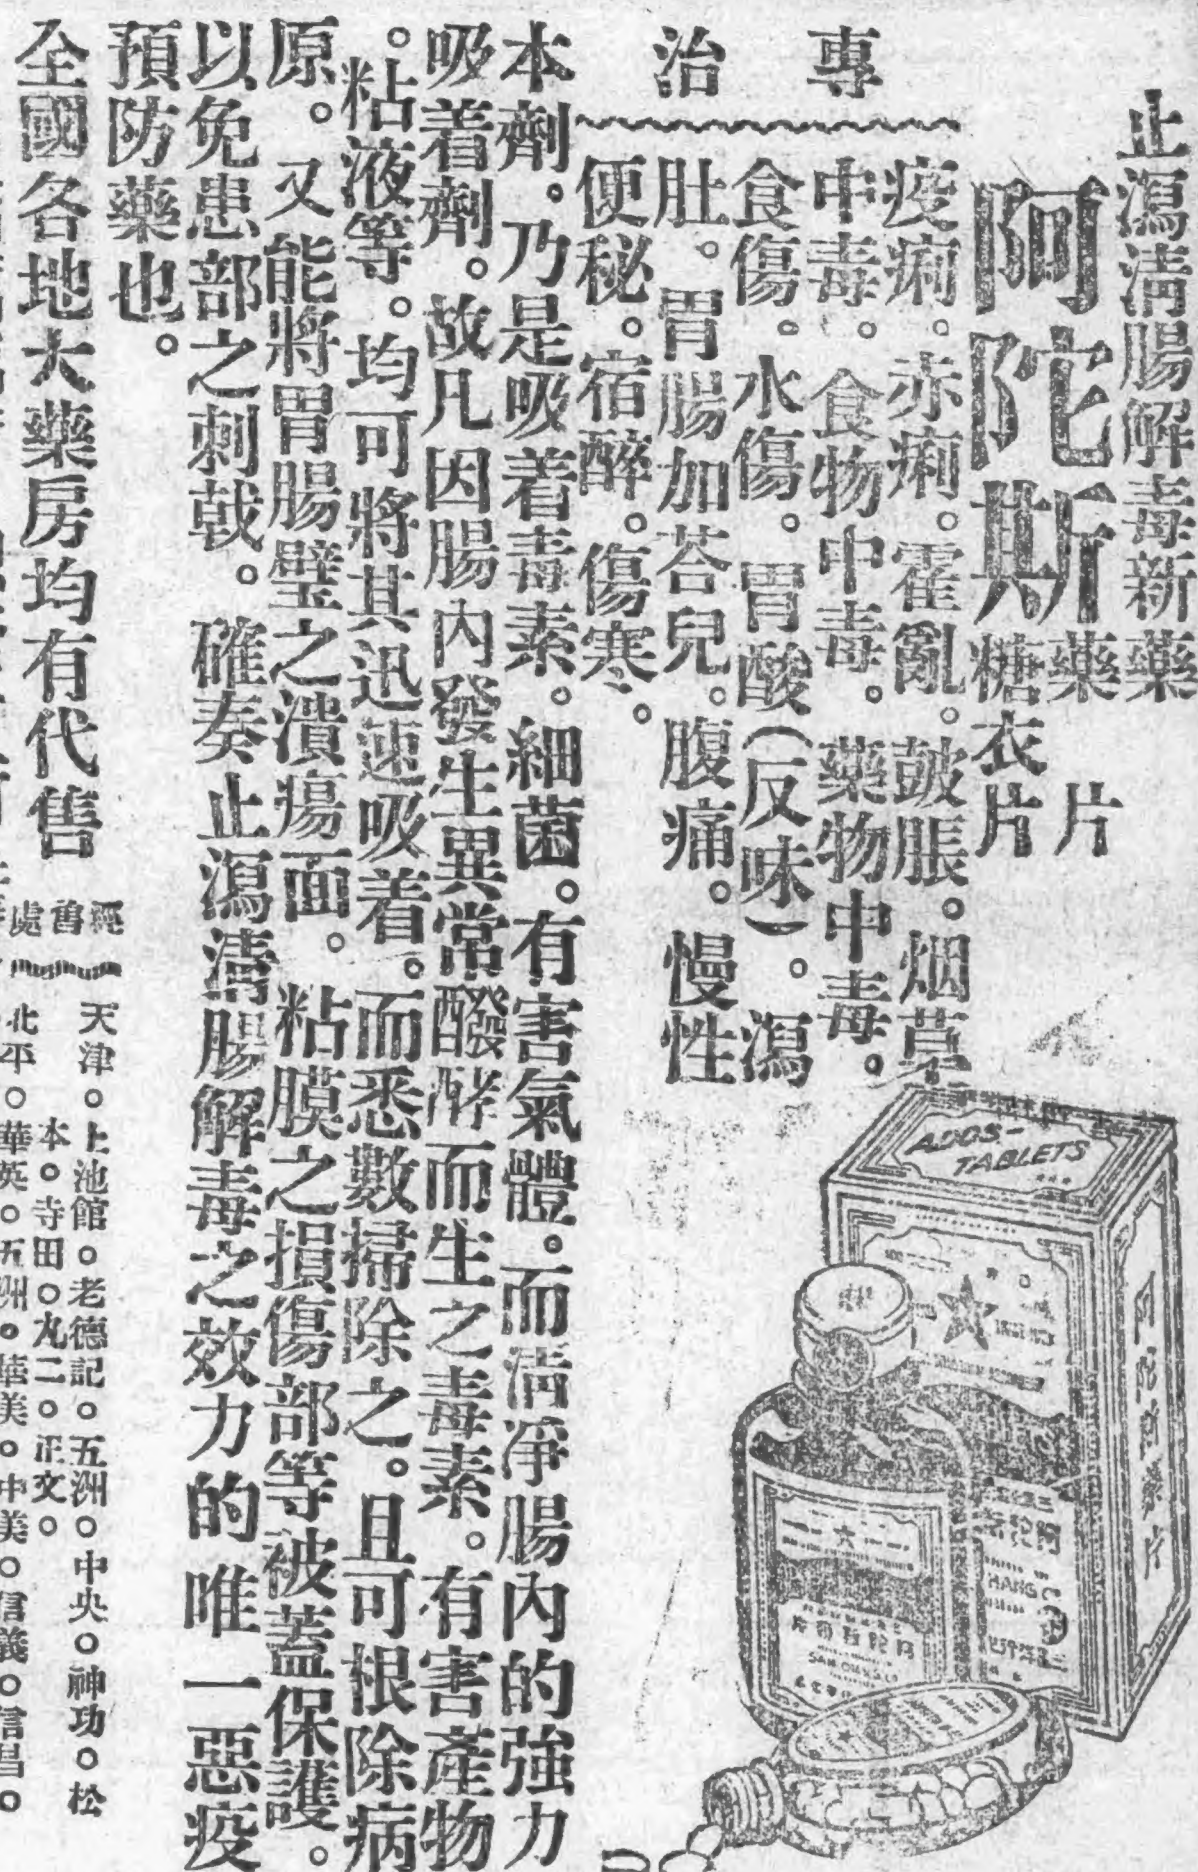 止瀉淸腸解毒新藥
阿陀斯
藥片
糖衣片
專治
疫痢。赤痢。霍亂。鼓脹。烟草
中毒。食物中毒。藥物中毒。
食傷。水傷。胃酸(反味)。瀉
肚。胃腸加荅兒。腹痛。慢性
便秘。宿醉。傷寒。
本劑。乃是吸着毒素。細菌。有害氣體。而淸淨腸內的強力
吸着劑。故凡因腸內發生異常醱酵而生之毒素。有害產物
。粘液等。均可將其迅速吸着。而悉數掃除之。且可根除病
原。又能將胃腸壁之潰瘍面。粘膜之損傷部等被蓋保護。
以免患部之刺戟。確奏止瀉淸腸解毒之效力的唯一惡疫
預防藥也。
全國各地大藥房均有代售
經售處
天津。上池館。老德記。五洲。中央。神功。松
本。寺田。九二。正文。
北平。華英。五洲。華美。中美。信義。信昌。
ADOS-
TABLETS